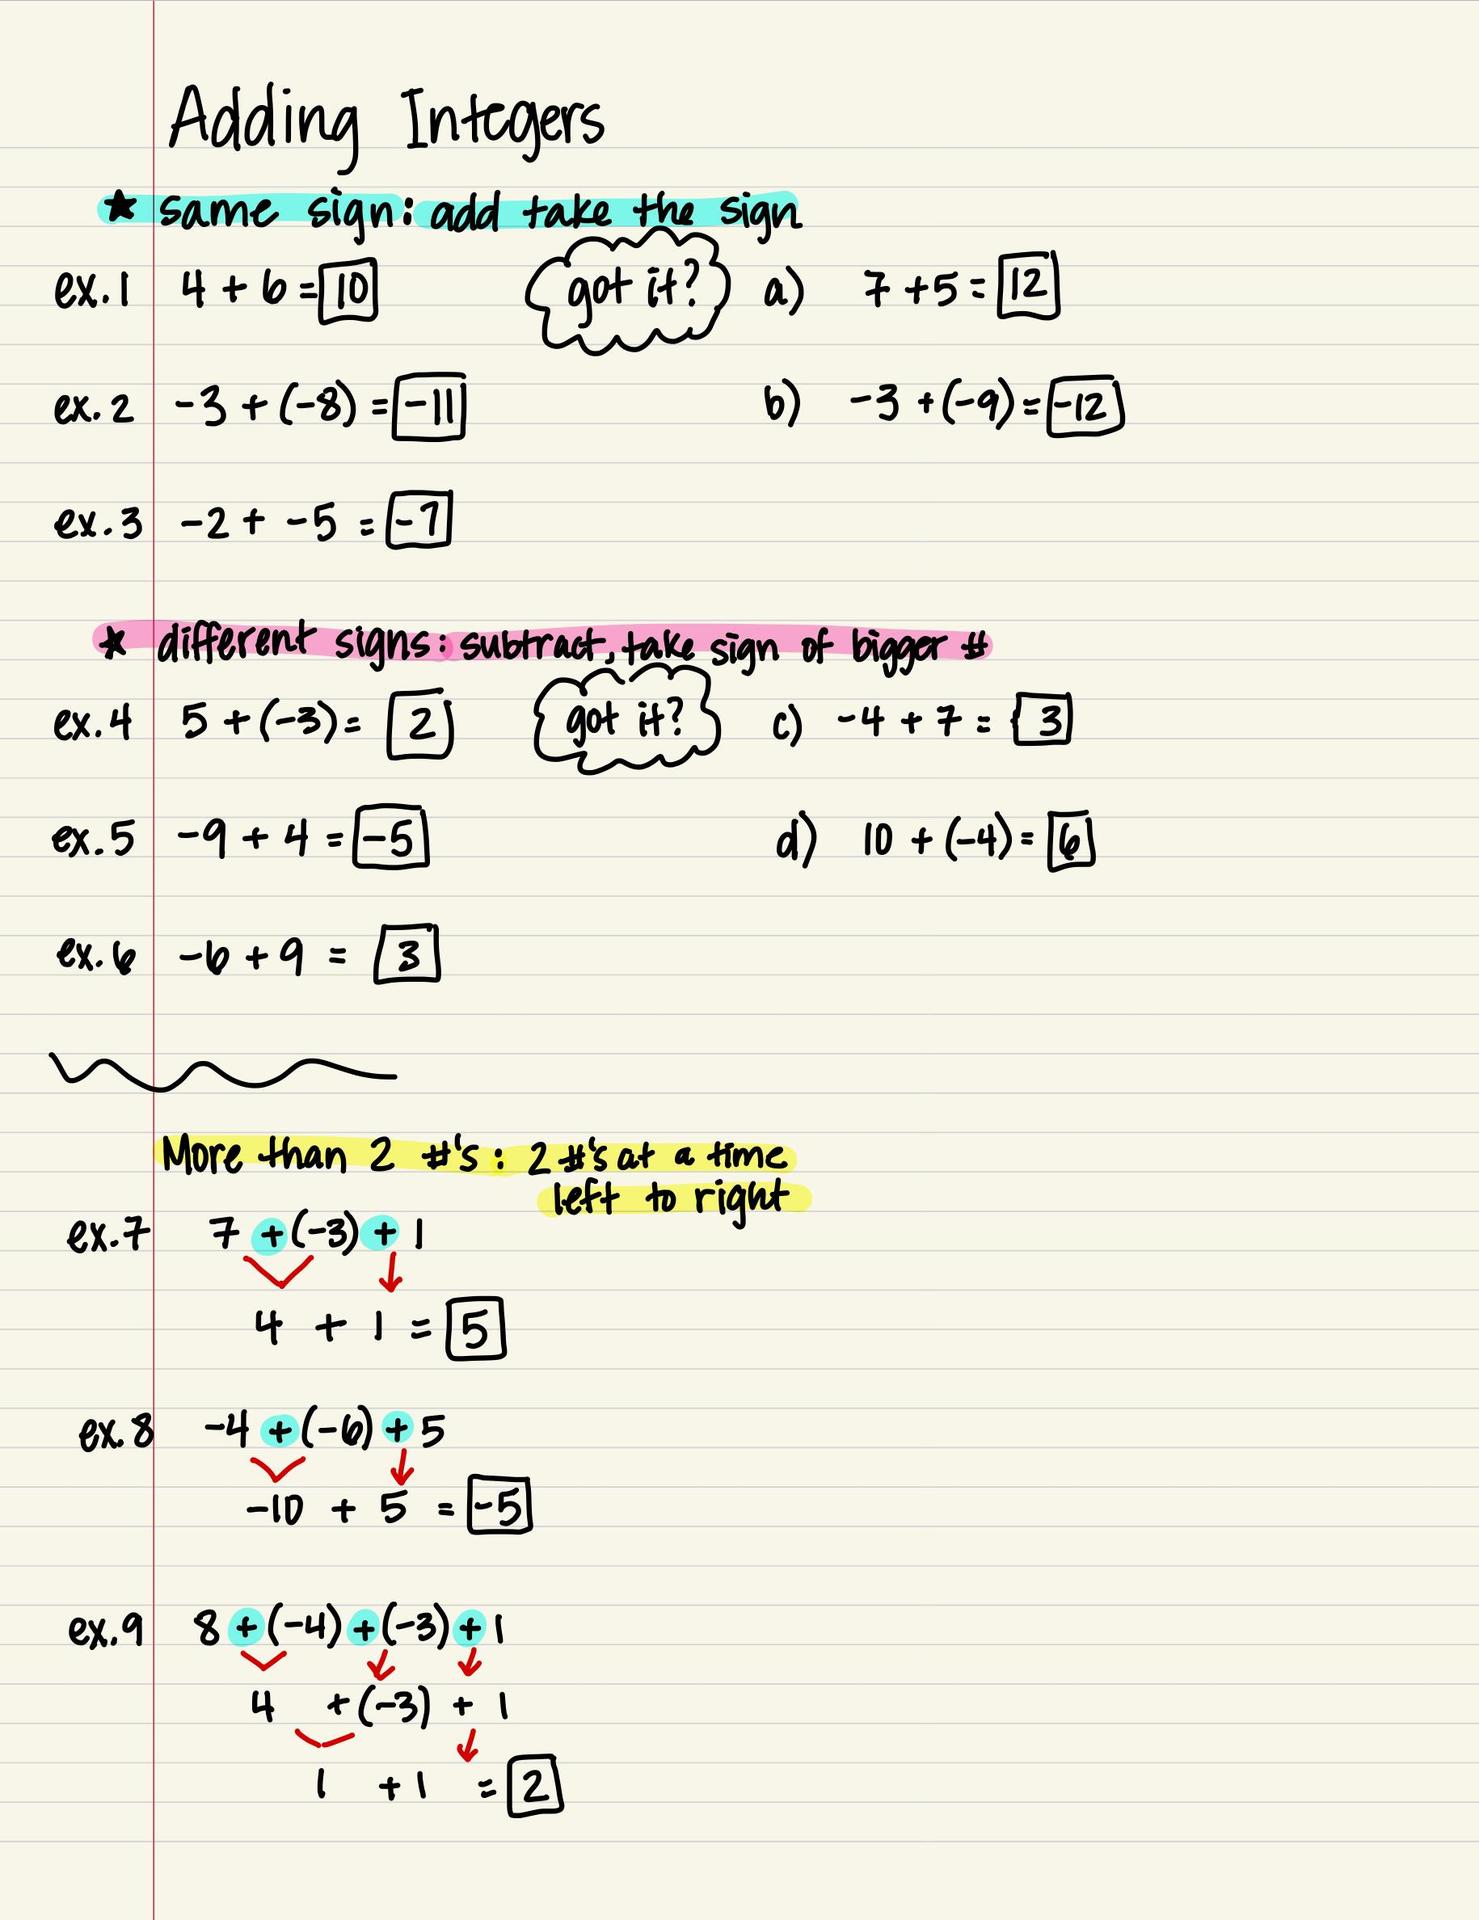 Adding Integers
★ same sign: add take the sign
ex.1 4 + 6 = 10 got it? a) 7 + 5 = 12
ex.2 -3 + (-8) = -11 b) -3 + (-9) = -12
ex.3 -2 + -5 = -7
★ different signs: subtract, take sign of bigger #
ex.4 5 + (-3) = 2 got it? c) -4 + 7 = 3
ex.5 -9 + 4 = -5 d) 10 + (-4) = 6
ex.6 -6 + 9 = 3
More than 2 #'s: 2 #'s at a time
left to right
ex.7 7 + (-3) + 1
4 + 1 = 5
ex.8 -4 + (-6) + 5
-10 + 5 = -5
ex.9 8 + (-4) + (-3) + 1
4 + (-3) + 1
1 + 1 = 2